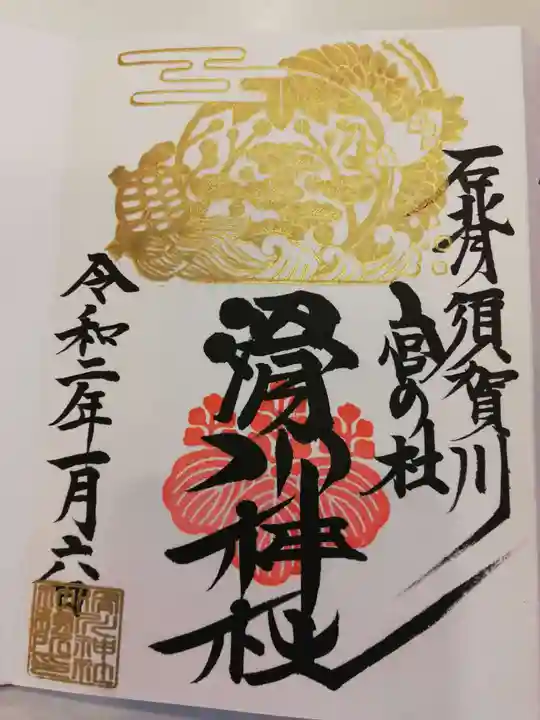 石背 須賀川
宮の杜
滑川神社
令和二年一月六日